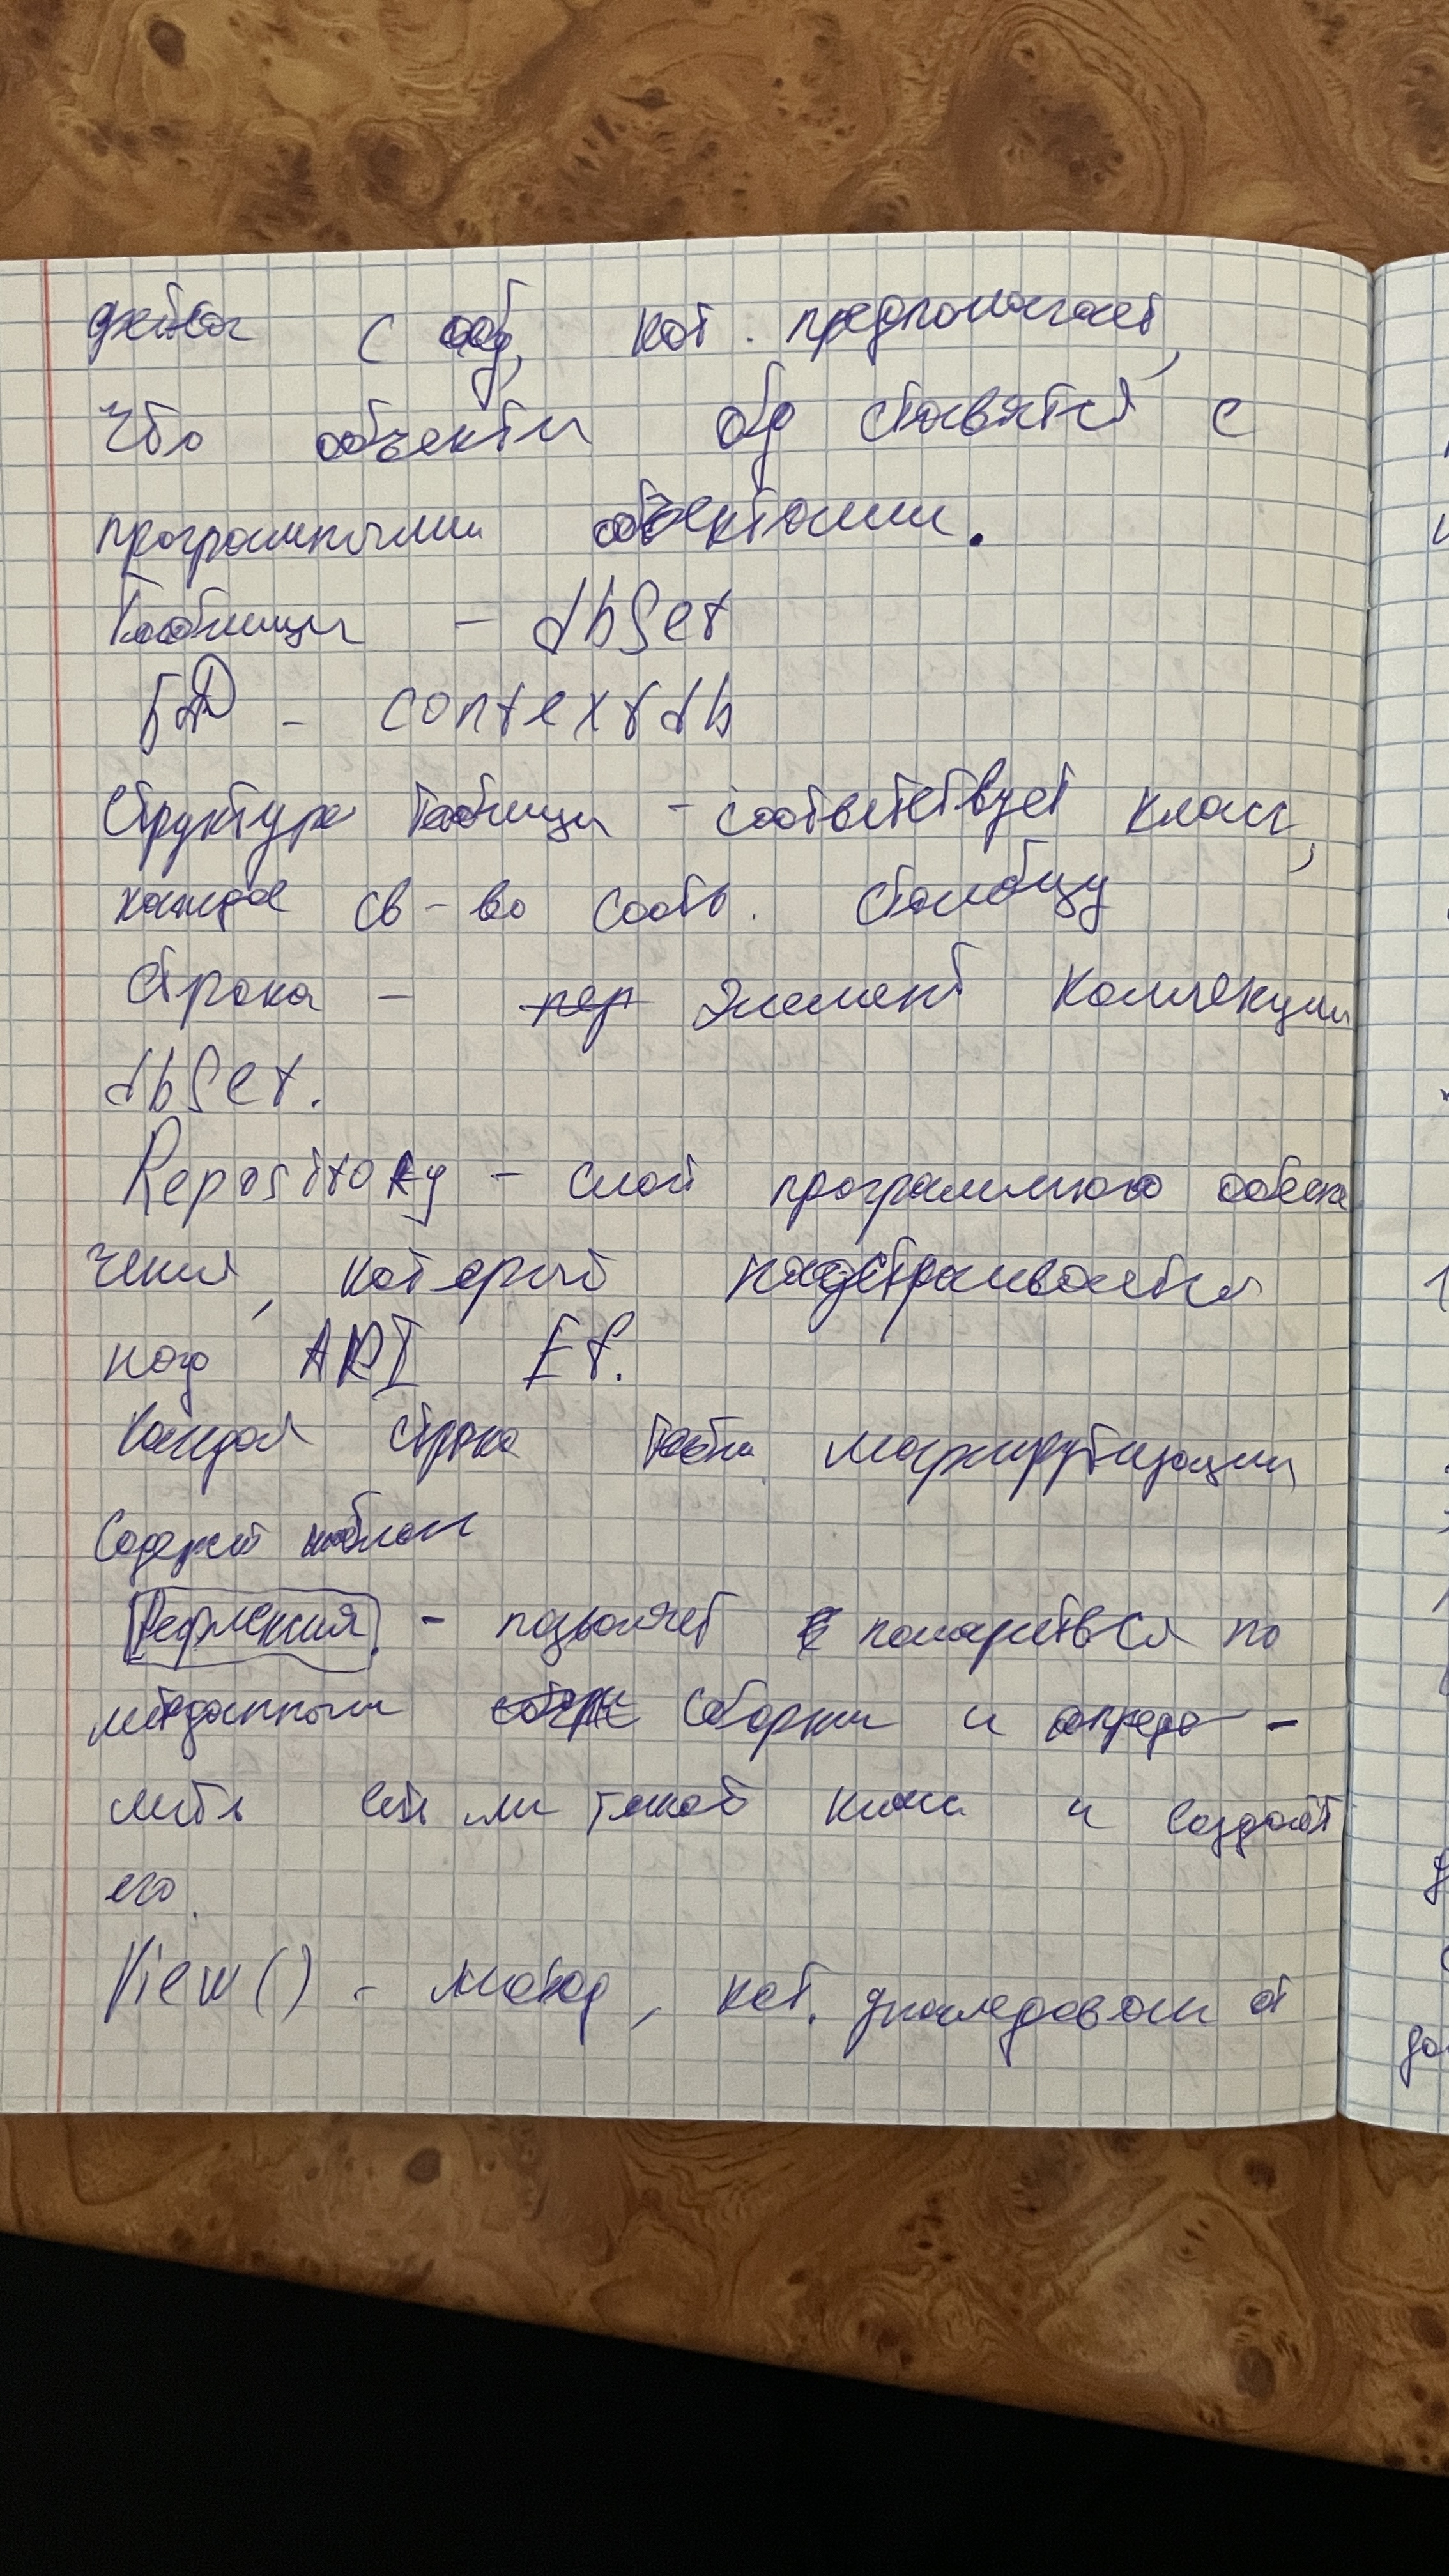 фейса с обд, кот. предполагает,
что объекты обд ставятся с
программными объектами.
Таблицы - dbSet
БД - contextdb
Структуре таблицы - соответствует класс,
каждое св-во соотв. столбцу
Строка - пер элемент коллекции
dbSet.
Repository - слой программного обеспе
чения, который надстраивается
над API EF.
Каждая строка табл. маршрутизации
содержит шаблон
Рефлексия - позволяет полазиться по
метаданным сборки и опреде-
лить есть ли такой класс и создаёт
его.
View() - метод, кот. унаследован от